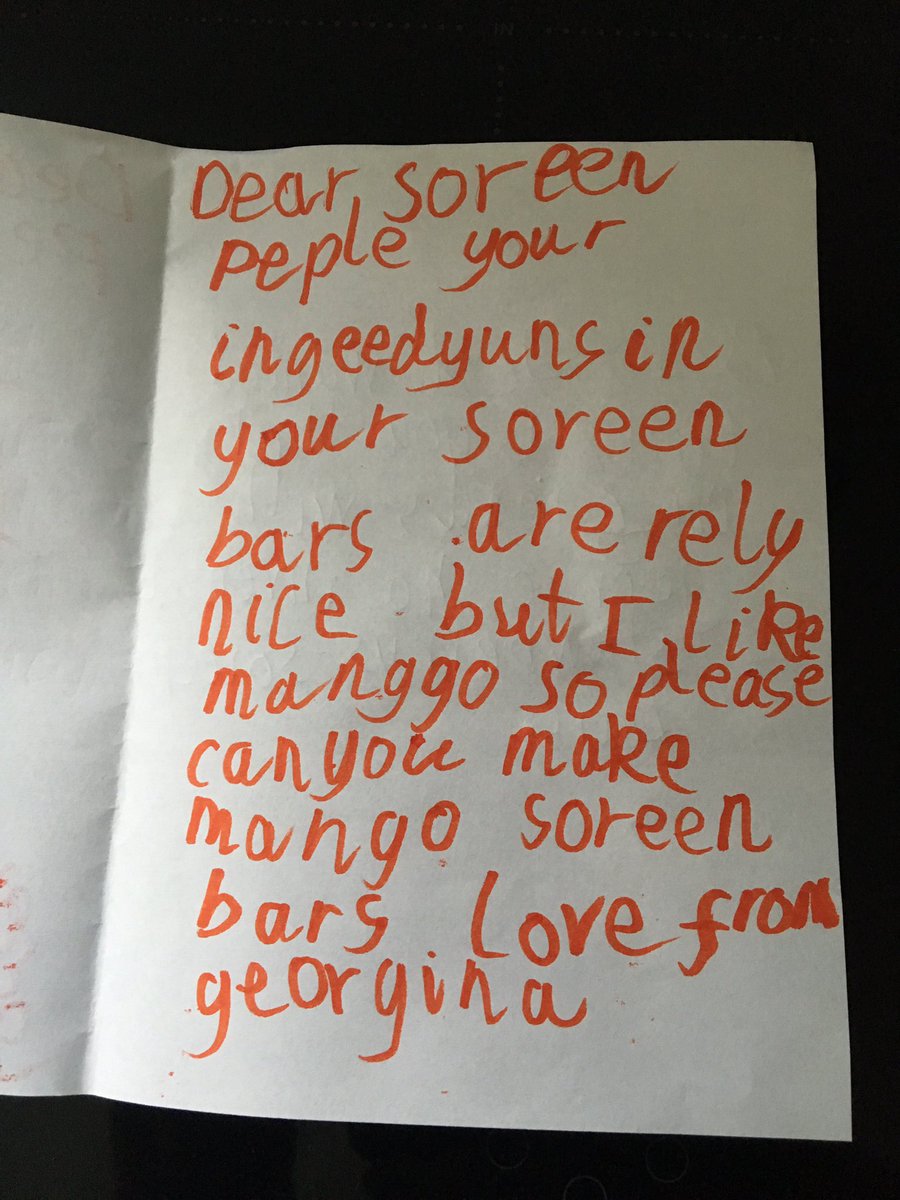 Dear soreen
peple your
ingeedyuns in
your soreen
bars are rely
nice but I like
manggo so please
can you make
mango soreen
bars love from
georgina